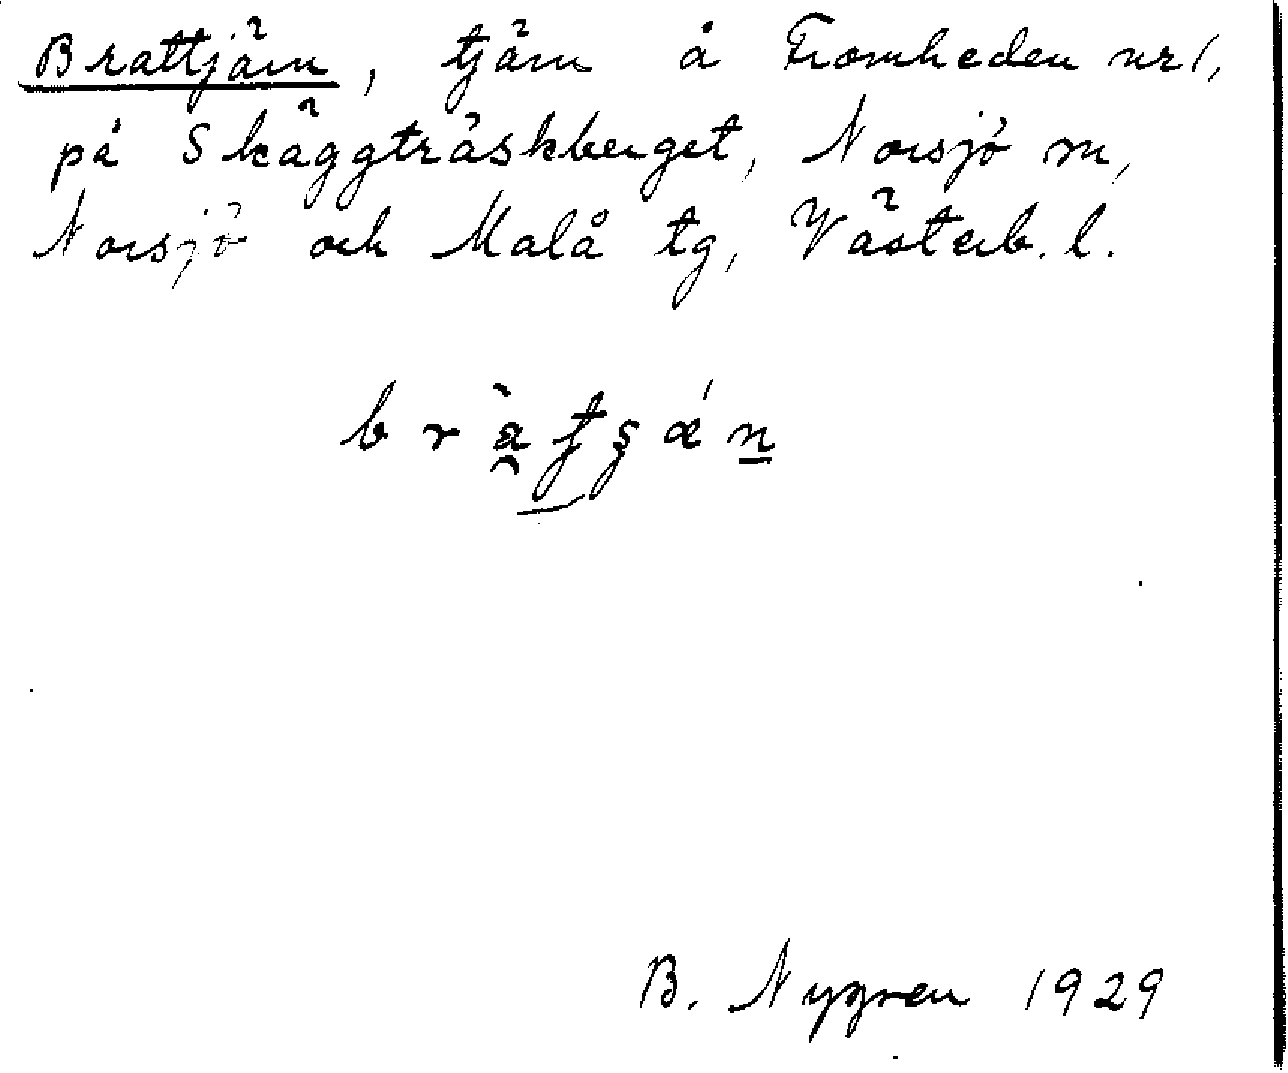 Brattjärn, tjärn å Fromheden nr 1,
på Skäggträskberget, Norsjö sn,
Norsjö och Malå tg, Västerb. l.
B. Nygren 1929